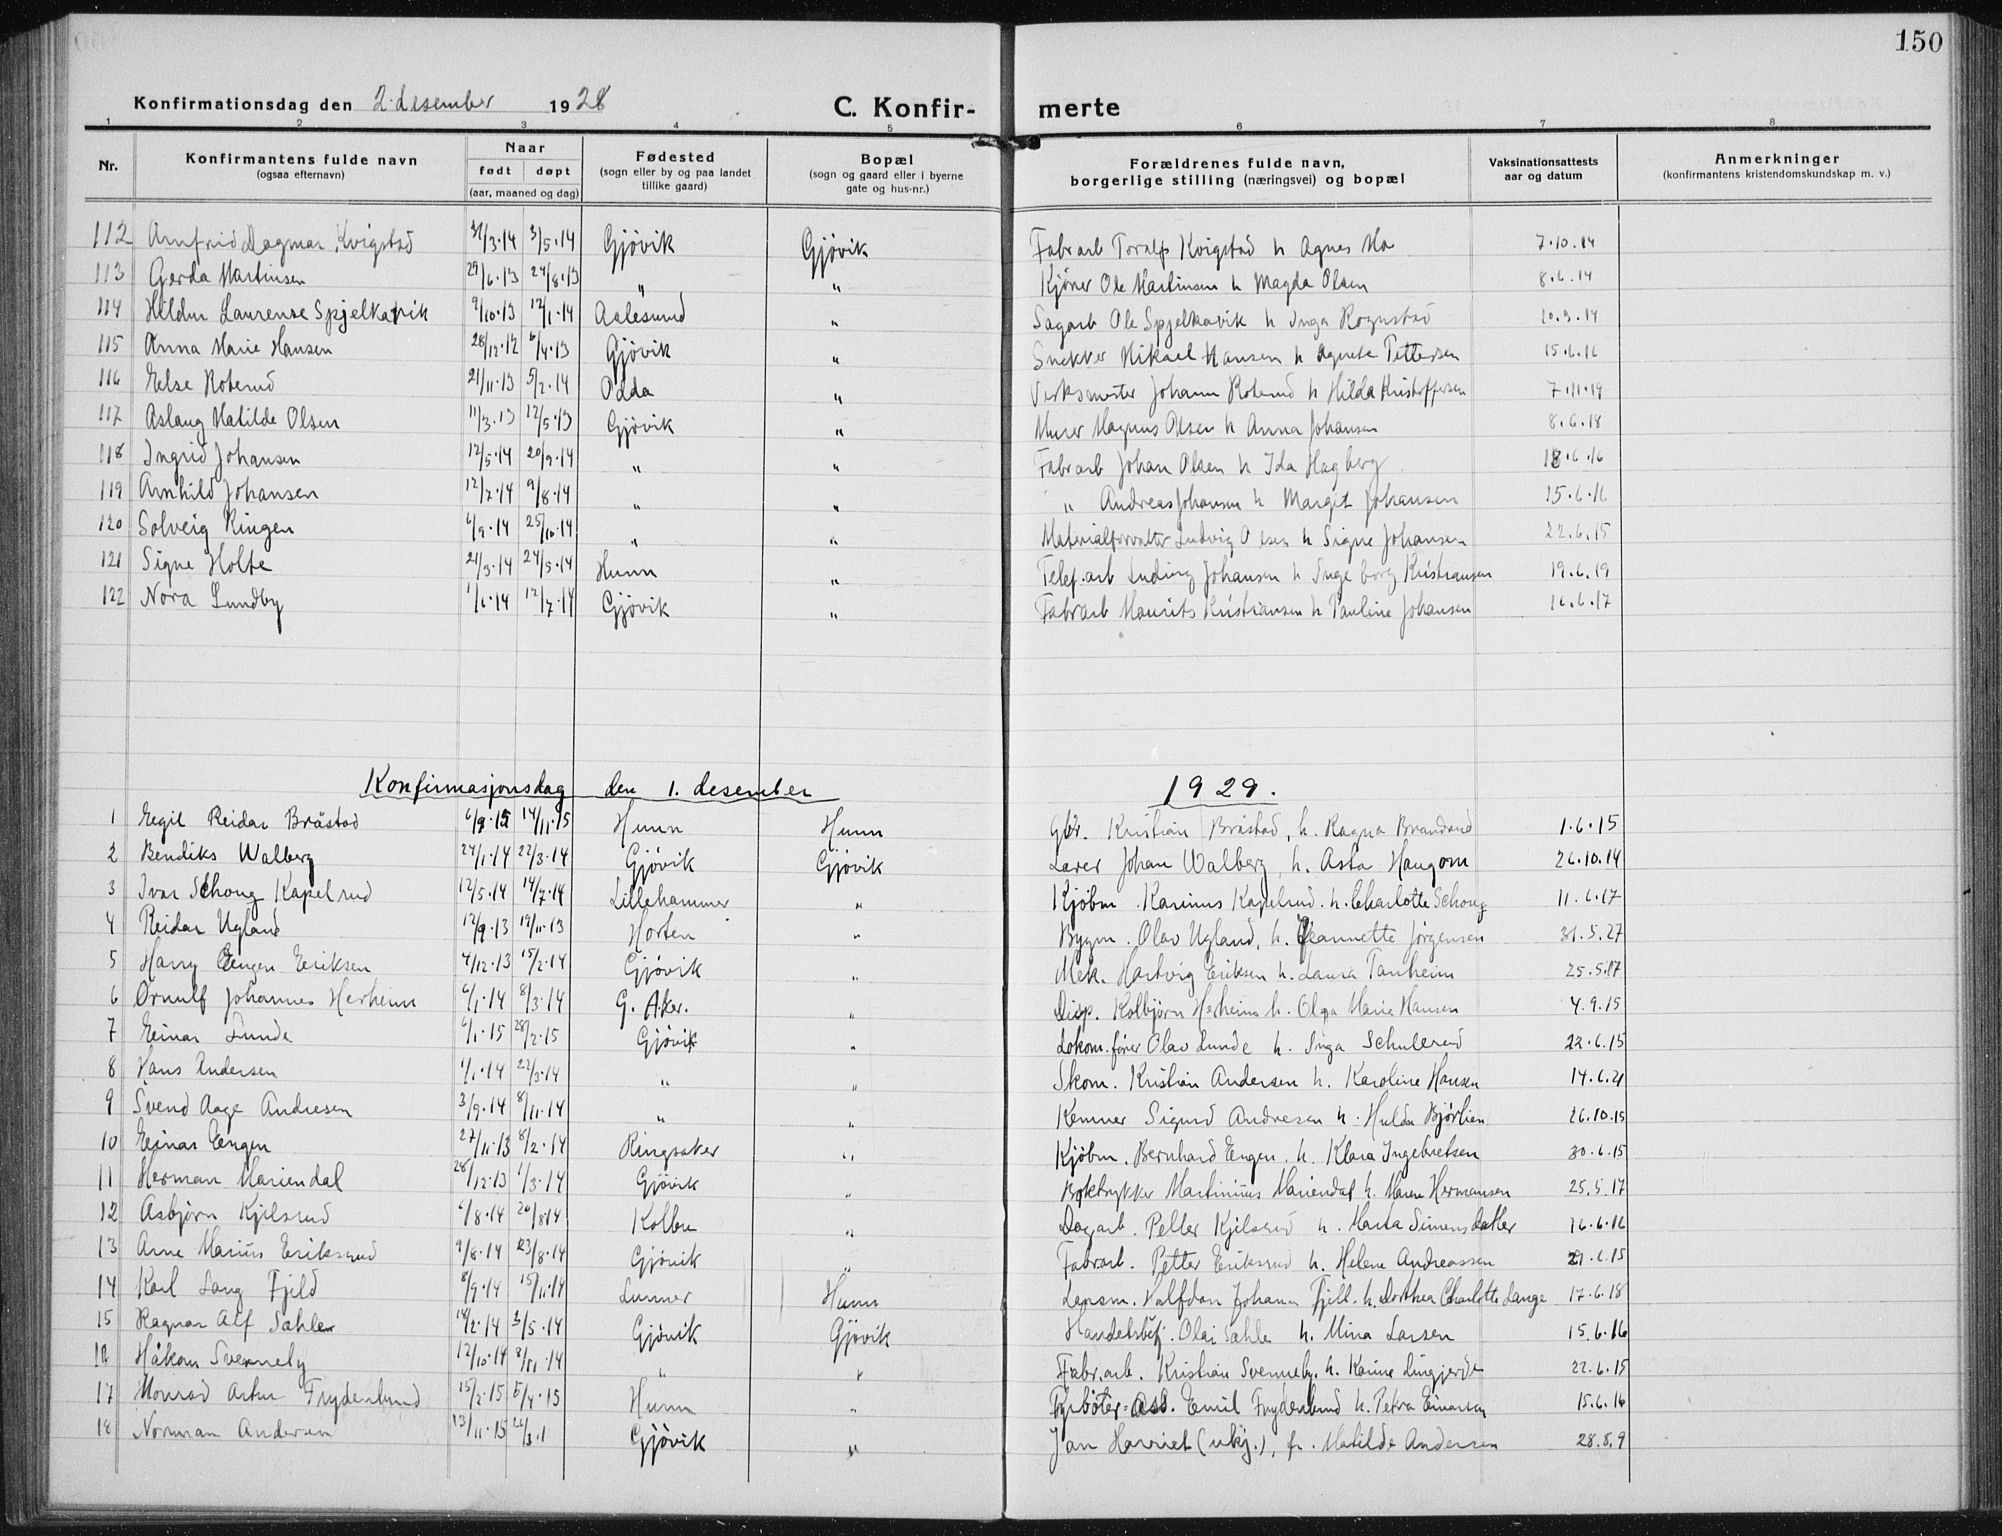 150
Konfirmationsdag den 2. desember 1928 C. Konfir- merte
1 2 3 4 5 6 7 8
Nr. Konfirmantens fulde navn (ogsaa efternavn) Naar født døpt (aar, maaned og dag) Fødested (sogn eller by og paa landet tillike gaard) Bopæl (sogn og gaard eller i byerne gate og hus-nr.) Forældrenes fulde navn, borgerlige stilling (næringsvei) og bopæl Vaksinationsattests aar og datum Anmerkninger (konfirmantens kristendomskundskap m. v.)
112 Arnfrid Dagmar Kvigstad 31/3.14 3/5.14 Gjövik Gjövik Fabrarb Toralf Kvigstad h Agnes Mo 7.10.14
113 Gerda Martinsen 29/6.13 24/8.13 " " Kjörer Ole Martinsen h Magda Olsen 8.6.14
114 Hildur Laurense Spjelkavik 9/10.13 12/1.14 Aalesund " Sagarb Ole Spjelkavik h Inga Rognstad 10.3.14
115 Anna Marie Hansen 28/12.12 6/4.13 Gjövik " Snekker Mikael Hansen h Agnete Pettersen 15.6.16
116 Else Roterud 21/11.13 5/2.14 Odda " Verksmester Johann Roterud h Hilda Kristoffersen 7.11.19
117 Aslaug Matilde Olsen 11/3.13 12/5.13 Gjövik " Murer Magnus Olsen h Anna Johansen 8.6.18
118 Ingrid Johansen 12/5.14 20/9.14 " " Fabrarb Johan Olsen h Ida Hagberg 18.6.16
119 Arnhild Johansen 12/7.14 9/8.14 " " " Andreas Johansen h Margit Johansen 15.6.16
120 Solveig Ringen 6/9.14 25/10.14 " " Materialforvalter Ludvig Olsen h Signe Johansen 22.6.15
121 Signe Holte 21/3.14 24/5.14 Hunn " Telef.arb Ludvig Johansen h Ingeborg Kristiansen 19.6.19
122 Nora Lundby 1/6.14 12/7.14 Gjövik " Fabrarb Maurits Kristiansen h Pauline Johansen 16.6.17
Konfirmasjonsdag den 1. desember 1929.
1 Egil Reidar Bråstad 6/9.15 14/11.15 Hunn Hunn Gbr. Kristian Bråstad, h. Ragna Brandrud 1.6.15
2 Bendiks Walberg 24/1.14 22/3.14 Gjövik Gjövik Lærer Johan Walberg, h. Asta Haugom 26.10.14
3 Ivar Schong Kapelrud 12/5.14 14/7.14 Lillehammer " Kjöbm. Karinus Kapelrud. h. Charlotte Schong 11.6.17
4 Reidar Ugland 12/9.13 19/11.13 Horten " Bygm. Olav Ugland, h. Jeannette Jörgensen 31.5.27
5 Harry Engen Eriksen 4/12.13 15/2.14 Gjövik " Mek. Hartvig Eriksen h. Laura Tanheim 25.5.17
6 Ørnulf Johannes Herheim 6/1.14 8/3.14 G. Aker. " Disp. Kolbjörn Herheim h. Olga Marie Hansen 4.9.15
7 Einar Lunde 6/1.15 28/2.15 Gjövik " Lokom.förer Olav Lunde h. Inga Schulerud 22.6.15
8 Hans Andersen 1/1.14 22/3.14 " " Skom. Kristian Andersen h. Karoline Hansen 14.6.21
9 Svend Aage Andresen 3/9.14 8/11.14 " " Kemner Sigurd Andresen h. Hulda Bjørlien 26.10.15
10 Einar Engen 27/11.13 8/2.14 Ringsaker " Kjöbm. Bernhard Engen. h. Klara Ingebretsen 30.6.15
11 Herman Mariendal 28/12.13 1/3.14 Gjövik " Boktrykker Martinius Mariendal h. Maren Hermansen 25.5.17
12 Asbjörn Kjelsrud 6/8.14 20/8.14 Kolbu " Dagarb. Petter Kjelsrud h. Marta Simensdatter 16.6.16
13 Arne Marius Eriksrud 9/8.14 23/8.14 Gjövik " Fabrarb. Petter Eriksrud h. Helene Andreassen 29.6.15
14 Karl Lang Fjeld 8/9.14 15/11.14 Lunner Hunn Lensm. Halfdan Johann Fjell. h. Dorthea Charlotte Lange 17.6.18
15 Ragnar Alf Sæhle 14/2.14 3/5.14 Gjövik Gjövik Handelsbetj. Olai Sæhle h. Mina Larsen 15.6.16
16 Håkon Svenneby 12/10.14 8/11.14 " " Fabr.arb. Kristian Svenneby. h. Karine Lingjerde 22.6.15
17 Monrad Artur Frydenlund 15/2.15 5/4.15 Hunn " Fyrböter-Ass. Emil Frydenlund h. Petra Einarsen 15.6.16
18 Norman Andersen 13/11.15 26/3.1 Gjövik " Jan Harriet (ukj.), fr. Matilde Andersen 28.8.9